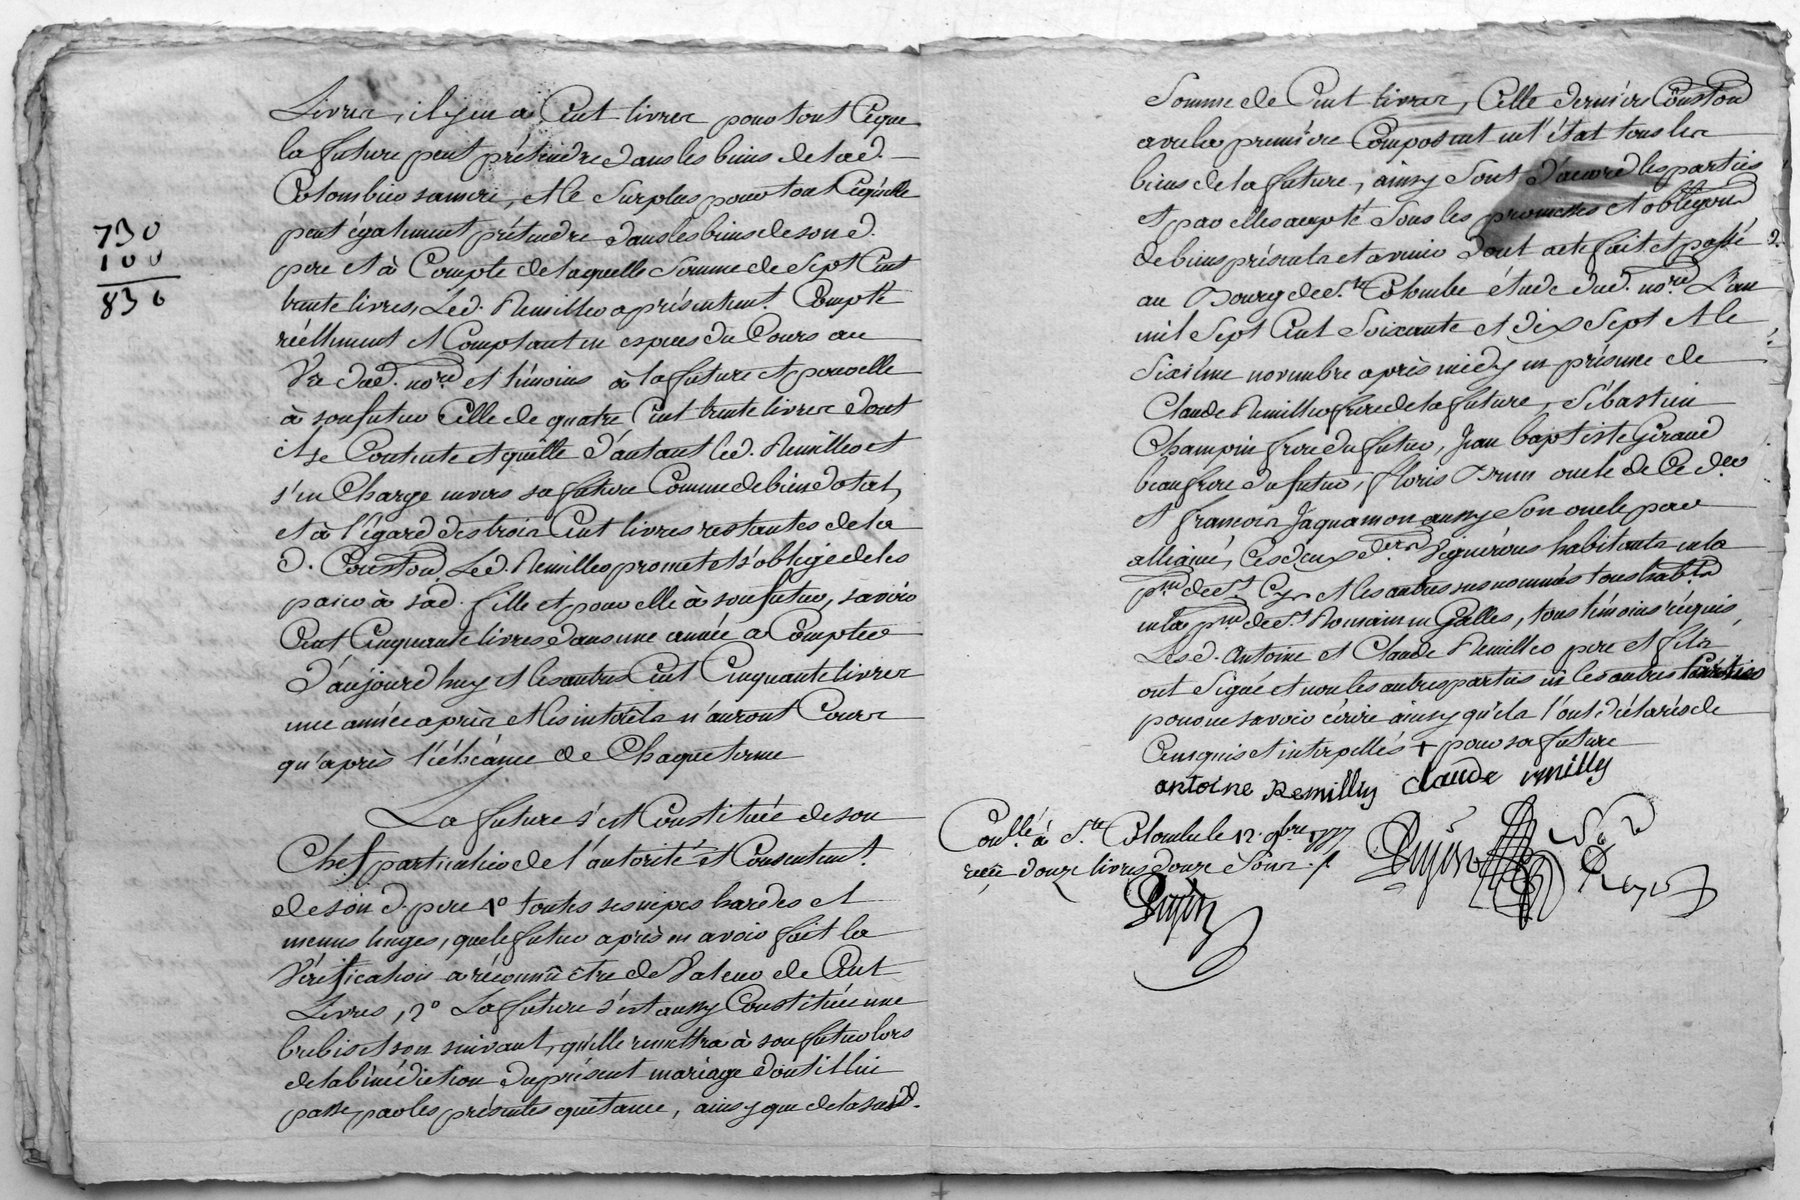 730
100
830
Livres, il y en a Cent livres pour tout Ceque
la future peut prétendre dans les biens de lad.
Colombier sa mere, et le surplus pour tout Cequ'elle
peut également prétendre dans les biens de son d.
pere et à Compte de laquelle Somme de Sept Cent
trente livres, Led. Remillieu a présentemt. Compté
réellement et Comptant en especes du Cours au
Vu dud. nore. et témoins à la future et pour elle
à son futur Celle de quatre Cent trente livres dont
il se Contente et quitte d'autant led. Remillieu et
s'en Charge envers sa future Comme de bien dotal,
et à l'égard des trois Cent livres restantes de la
d. Conston Led. Remillieu promet et s'oblige de les
païer à sad. fille et pour elle à son futur, savoir
Cent Cinquante livres dans une année a Compter
d'aujourd'huy et les autres Cent Cinquante livres
une année après et les intérêts n'auront Cours
qu'après l'échéance de Chaque terme
La future s'est Constituée de son
Chef particulier de l'autorité et Consentemt.
de son d. pere 1º toutes ses nipes hardes et
menus linges, que le futur après en avoir fait la
Vérification a réconnû être de Valeur de Cent
Livres, 2º La future s'est aussy Constituée une
brebis et son suivant, qu'elle remettra à son futur lors
de la bénédiction du présent mariage dont il lui
passe par les présentes quittance, ainsy que de la susd.
Somme de Cent livres, Cette derniére Conston
avec la premiére Composent en l'état tous les
biens de la future, ainsy Sont d'accord les parties
et par elles accepté Sous les promesses et obligons
de biens présents et avenir dont acte fait et passé
au Bourg de Ste. Colombe étude dud. nore. L'an
mil Sept Cent Soixante et dix Sept et le
Sixiéme novembre après midy en présence de
Claude Remillieu frere de la future, Sébastien
Champin frere du futur, Jean baptiste Giraud
beaufrere du futur, floris Brun oncle de Ce der
et francois Jaquamon aussy Son oncle par
alliance, Ces deux ders. Vignérons habitants en la
psse de St. Cyr et les autres sus nommés tous habts
en la psse de St. Romain en Galles, tous témoins réquis
Les d. Antoine et Claude Remillieu pere et fils
ont Signé et non les autres parties ni les autres
pour ne savoir écrire ainsy qu'ils l'ont déclaré de
Ce enquis et interpellés + pour sa future
antoine Remillieu Claude remilly
Conllé. à Ste Colombe le 12. 9bre 1777
reçu douze livres douze Sous